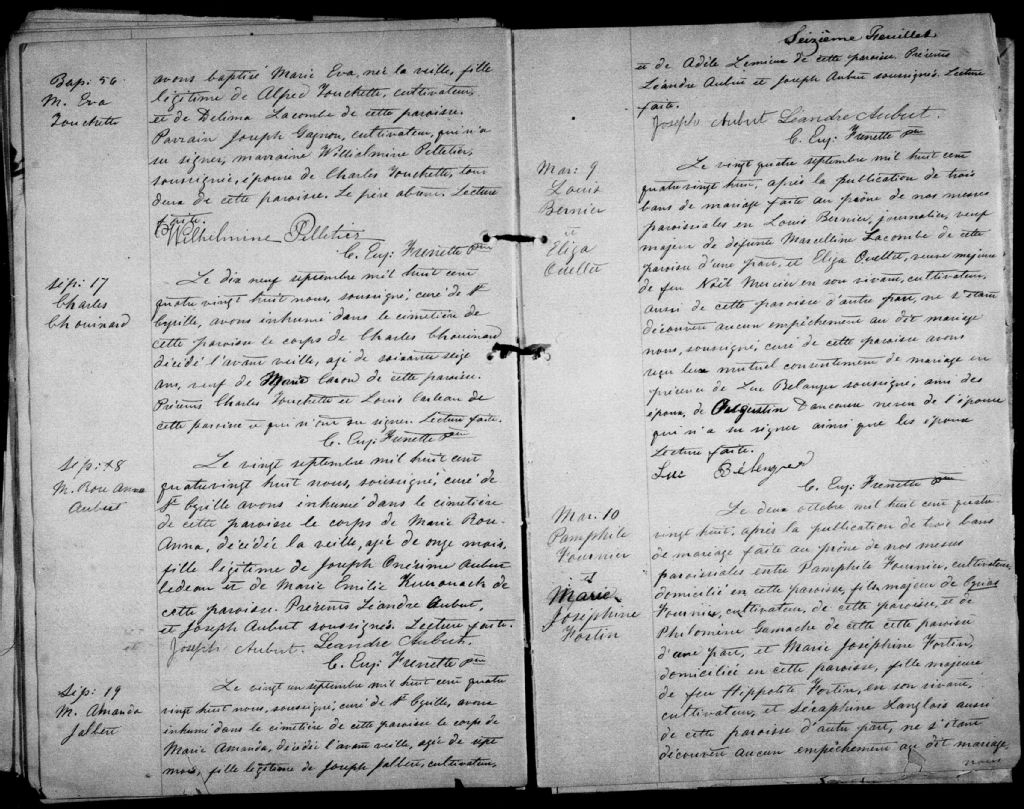 Bap: 56
M. Eva
Touchette
avons baptisé Marie Eva, née la veille, fille
légitime de Alfred Touchette, cultivateur,
et de Delima Lacombe de cette paroisse.
Parrain Joseph Gagnon, cultivateur, qui n'a
su signer, marraine Wilhelmine Pelletier,
soussignée, épouse de Charles Touchette, tous
deux de cette paroisse. Le père absent. Lecture
faite.
Wilhilmine Pelletier
C. Eug: Frenette ptre
Sép: 17
Charles
Chouinard
Le dix neuf septembre mil huit cent
quatre vingt huit nous, soussigné, curé de St
Cyrille, avons inhumé dans le cimetière de
cette paroisse le corps de Charles Chouinard
décédé l'avant veille, agé de soixante seize
ans, veuf de Marie Caron de cette paroisse.
Présents Charles Touchette et Louis
cette paroisse et qui n'ont su signer. Lecture faite.
C. Eug: Frenette ptre
Sép: 18
M. Rose Anna
Aubert
Le vingt septembre mil huit cent
quatrevingt huit nous, soussigné, curé de
St Cyrille avons inhumé dans le cimetière
de cette paroisse le corps de Marie Rose-
Anna, décédée la veille, agée de onze mois,
fille légitime de Joseph Onésime Aubert
et de Marie Emilie de
cette paroisse. Présents Léandre Aubert,
et Joseph Aubert soussignés. Lecture faite.
Joseph Aubert Leandre Aubert
C. Eug: Frenette ptre
Sép: 19
M. Amanda
Jalbert
Le vingt un septembre mil huit cent quatre
vingt huit nous, soussigné, curé de St Cyrille, avons
inhumé dans le cimetière de cette paroisse le corps de
Marie Amanda, décédée l'avant veille, agée de sept
mois, fille légitime de Joseph Jalbert, cultivateur,
Seizième Feuillet
et de Adèle Lemieux de cette paroisse. Présents
Léandre Aubert et Joseph Aubert soussignés. Lecture
faite.
Joseph Aubert Léandre Aubert.
C. Eug: Frenette ptre
Mar: 9
Louis
Bernier
et
Eliza
Ouellet
Le vingt quatre septembre mil huit cent
quatre vingt huit, après la publication de trois
bans de mariage faite au prône de nos messes
paroissiales en Louis Bernier, journalier, veuf
majeur de défunte Marcelline Lacombe de cette
paroisse d'une part, et Eliza Ouellet, veuve majeure
de feu Noël Mercier en son vivant, cultivateur,
aussi de cette paroisse d'autre part, ne s'étant
découvert aucun empêchement au dit mariage
nous, soussigné, curé de cette paroisse avons
reçu leur mutuel consentement de mariage en
présence de Luc Belanger soussigné, ami des
époux, de Augustin Dancause neveu de l'épouse
qui n'a su signer ainsi que les époux
Lecture faite.
Luc Bélanger
C. Eug: Frenette ptre
Mar. 10
Pamphile
Fournier
&
Marie
Joséphine
Fortin
Le deux octobre mil huit cent quatre
vingt huit, après la publication de trois bans
de mariage faite au prône de nos messes
paroissiales entre Pamphile Fournier, cultivateur,
domicilié en cette paroisse, fils majeur de
Fournier, cultivateur, de cette paroisse, et de
Philomène Gamache de cette paroisse
d'une part, et Marie Joséphine Fortin,
domiciliée en cette paroisse, fille majeure
de feu Hippolite Fortin, en son vivant,
cultivateur, et Séraphine Langlois aussi
de cette paroisse d'autre part, ne s'étant
découvert aucun empêchement au dit mariage,
nous